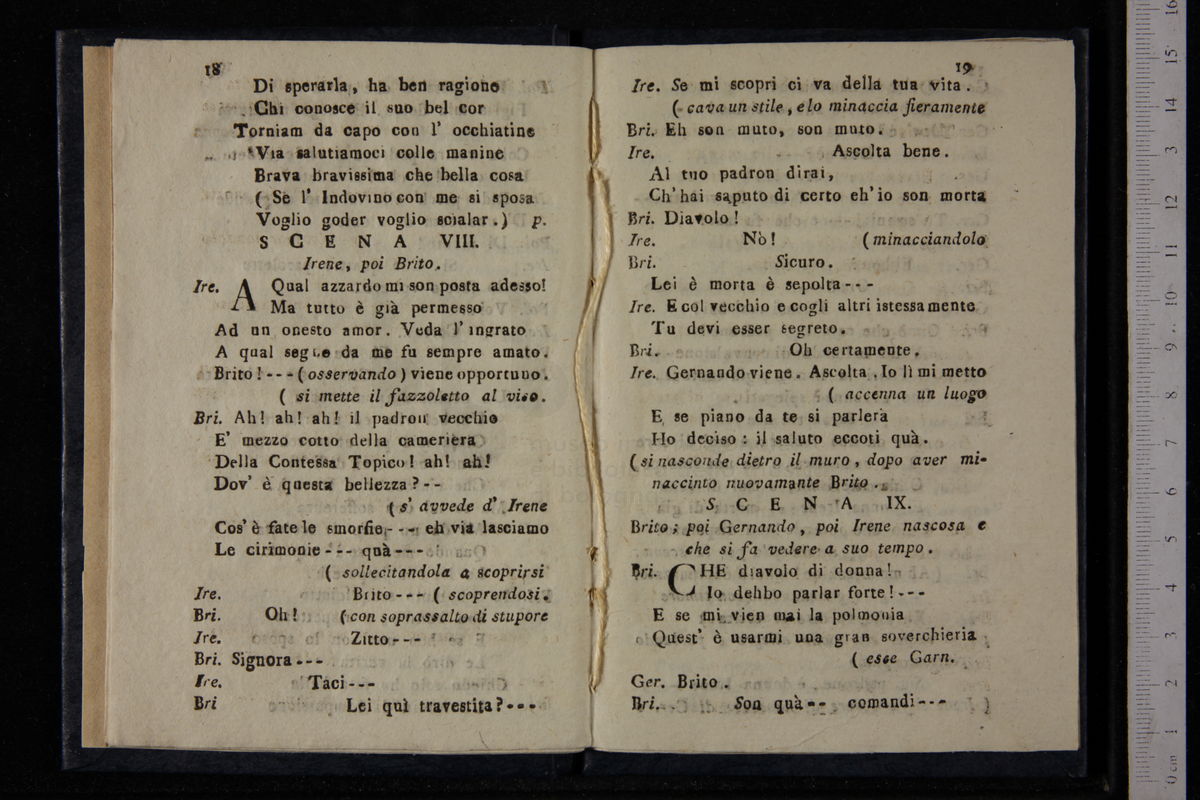 18
Di sperarla, ha ben ragione
Chi conosce il suo bel cor
Torniam da capo con l' occhiatine
Via salutiamoci colle manine
Brava bravissima che bella cosa
( Se l' Indovino con me si sposa
Voglio goder voglio scialar.) p.
SCENA VIII.
Irene, poi Brito.
Ire. A Qual azzardo mi son posta adesso!
Ma tutto è già permesso
Ad un onesto amor. Veda l' ingrato
A qual segno da me fu sempre amato.
Brito! --- ( osservando ) viene opportuno.
( si mette il fazzoletto al viso.
Bri. Ah! ah! ah! il padron vecchio
E' mezzo cotto della cameriera
Della Contessa Topico! ah! ah!
Dov' è questa bellezza? --
( s' avvede d' Irene
Cos' è fate le smorfie --- eh via lasciamo
Le cirimonie --- quà ---
( sollecitandola a scoprirsi
Ire. Brito --- ( scoprendosi.
Bri. Oh! ( con soprassalto di stupore
Ire. Zitto ---
Bri. Signora ---
Ire. Taci ---
Bri Lei quì travestita? ---
19
Ire. Se mi scopri ci va della tua vita.
( cava un stile, e lo minaccia fieramente
Bri. Eh son muto, son muto.
Ire. Ascolta bene.
Al tuo padron dirai,
Ch' hai saputo di certo eh' io son morta
Bri. Diavolo!
Ire. Nò! ( minacciandolo
Bri. Sicuro.
Lei è morta è sepolta ---
Ire. E col vecchio e cogli altri istessamente
Tu devi esser segreto.
Bri. Oh certamente.
Ire. Gernando viene. Ascolta. Io lì mi metto
( accenna un luogo
E se piano da te si parlerà
Ho deciso: il saluto eccoti quà.
( si nasconde dietro il muro, dopo aver mi-
naccinto nuovamante Brito.
SCENA IX.
Brito; poi Gernando, poi Irene nascosa e
che si fa vedere a suo tempo.
Bri. CHE diavolo di donna!
Io dehbo parlar forte! ---
E se mi vien mai la polmonia
Quest' è usarmi una gran soverchieria
( esce Garn.
Ger. Brito.
Bri. Son quà -- comandi ---